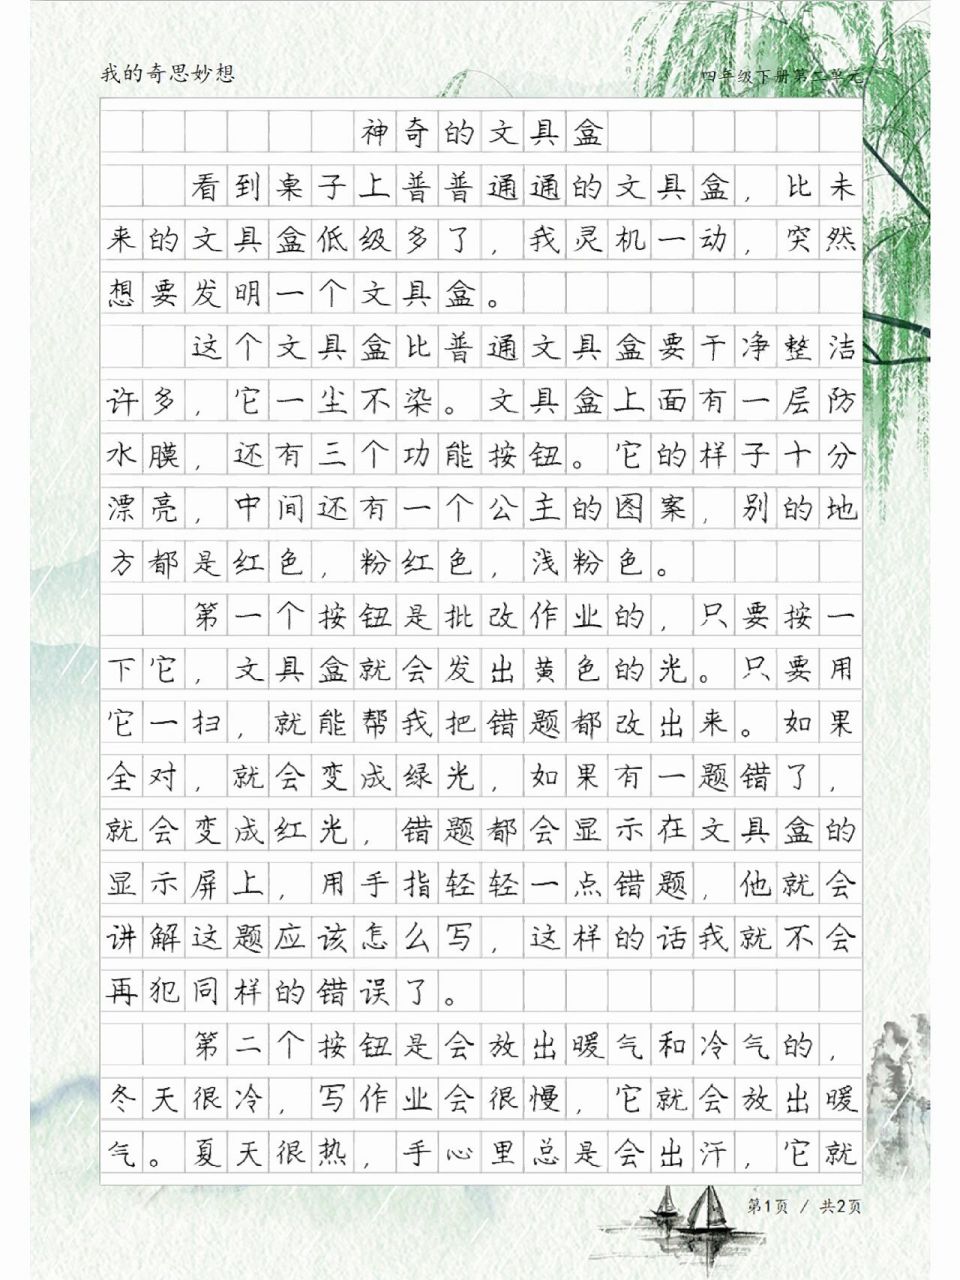 我的奇思妙想
四年级下册第二单元
神奇的文具盒
看到桌子上普普通通的文具盒，比未
来的文具盒低级多了，我灵机一动，突然
想要发明一个文具盒。
这个文具盒比普通文具盒要干净整洁
许多，它一尘不染。文具盒上面有一层防
水膜，还有三个功能按钮。它的样子十分
漂亮，中间还有一个公主的图案，别的地
方都是红色，粉红色，浅粉色。
第一个按钮是批改作业的，只要按一
下它，文具盒就会发出黄色的光。只要用
它一扫，就能帮我把错题都改出来。如果
全对，就会变成绿光，如果有一题错了，
就会变成红光，错题都会显示在文具盒的
显示屏上，用手指轻轻一点错题，他就会
讲解这题应该怎么写，这样的话我就不会
再犯同样的错误了。
第二个按钮是会放出暖气和冷气的，
冬天很冷，写作业会很慢，它就会放出暖
气。夏天很热，手心里总是会出汗，它就
第1页 / 共2页